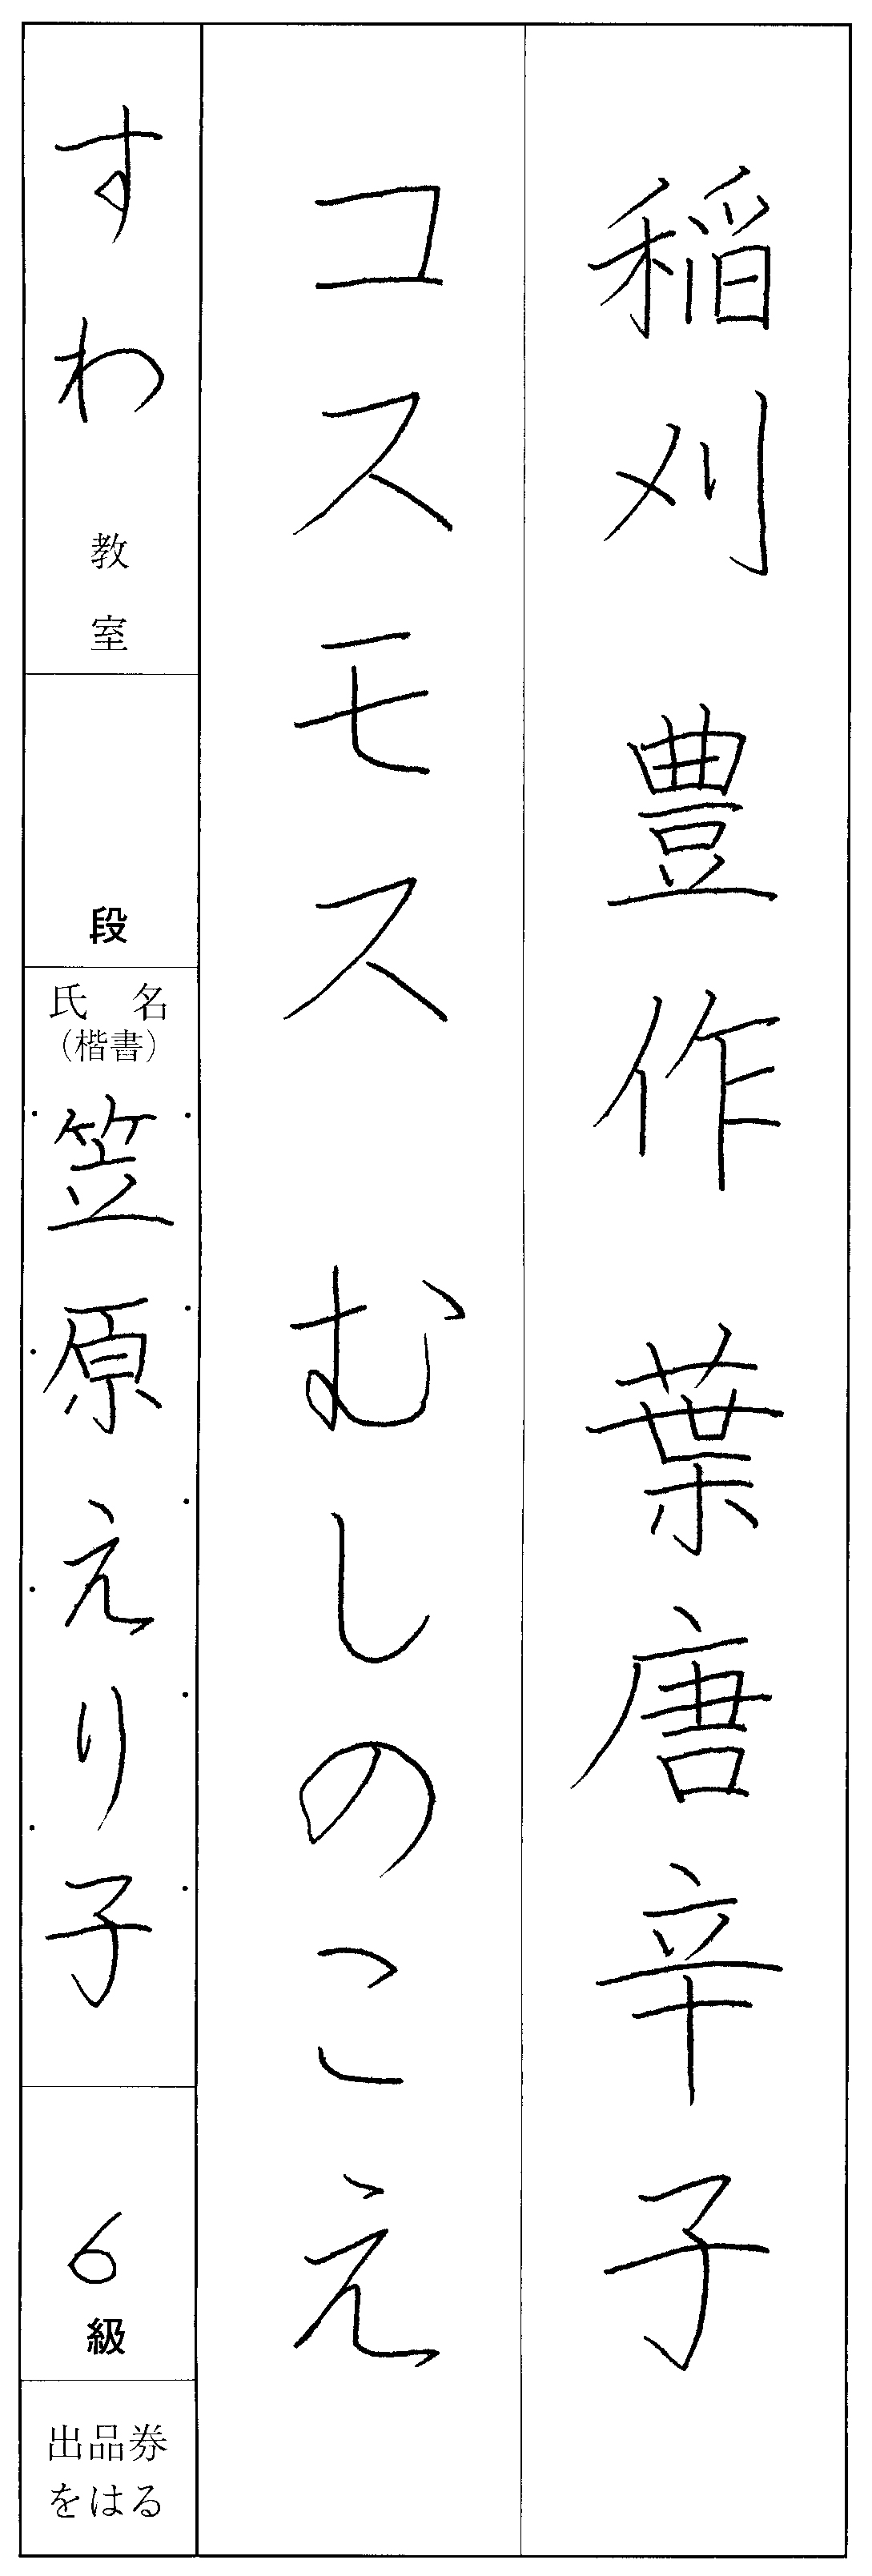 稲刈 豊作 葉唐辛子
コスモス むしのこえ
すわ 教室
段
氏 名
（楷書）
笠原えり子
6 級
出品券
をはる